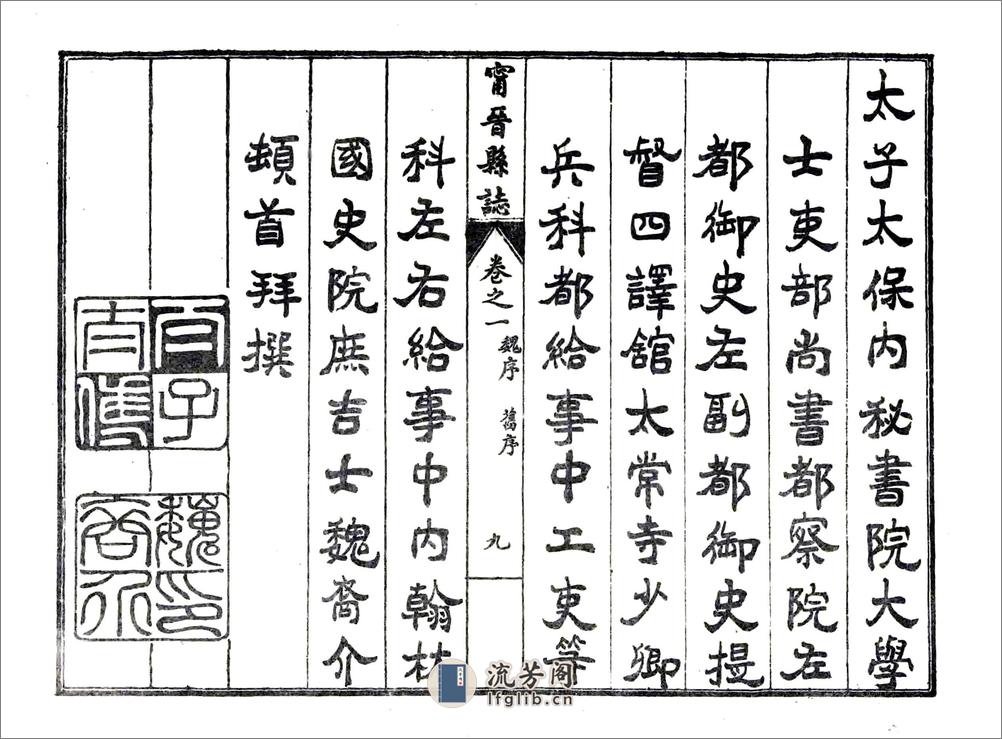 太子太保内秘書院大學
士吏部尚書都察院左
都御史左副都御史提
督四譯舘太常寺少卿
兵科都給事中工吏等
甯晉縣誌 卷之一 魏序 舊序 九
科左右給事中内翰林
國史院庶吉士魏裔介
頓首拜撰
魏印裔介
流芳阁
lfglib.cn